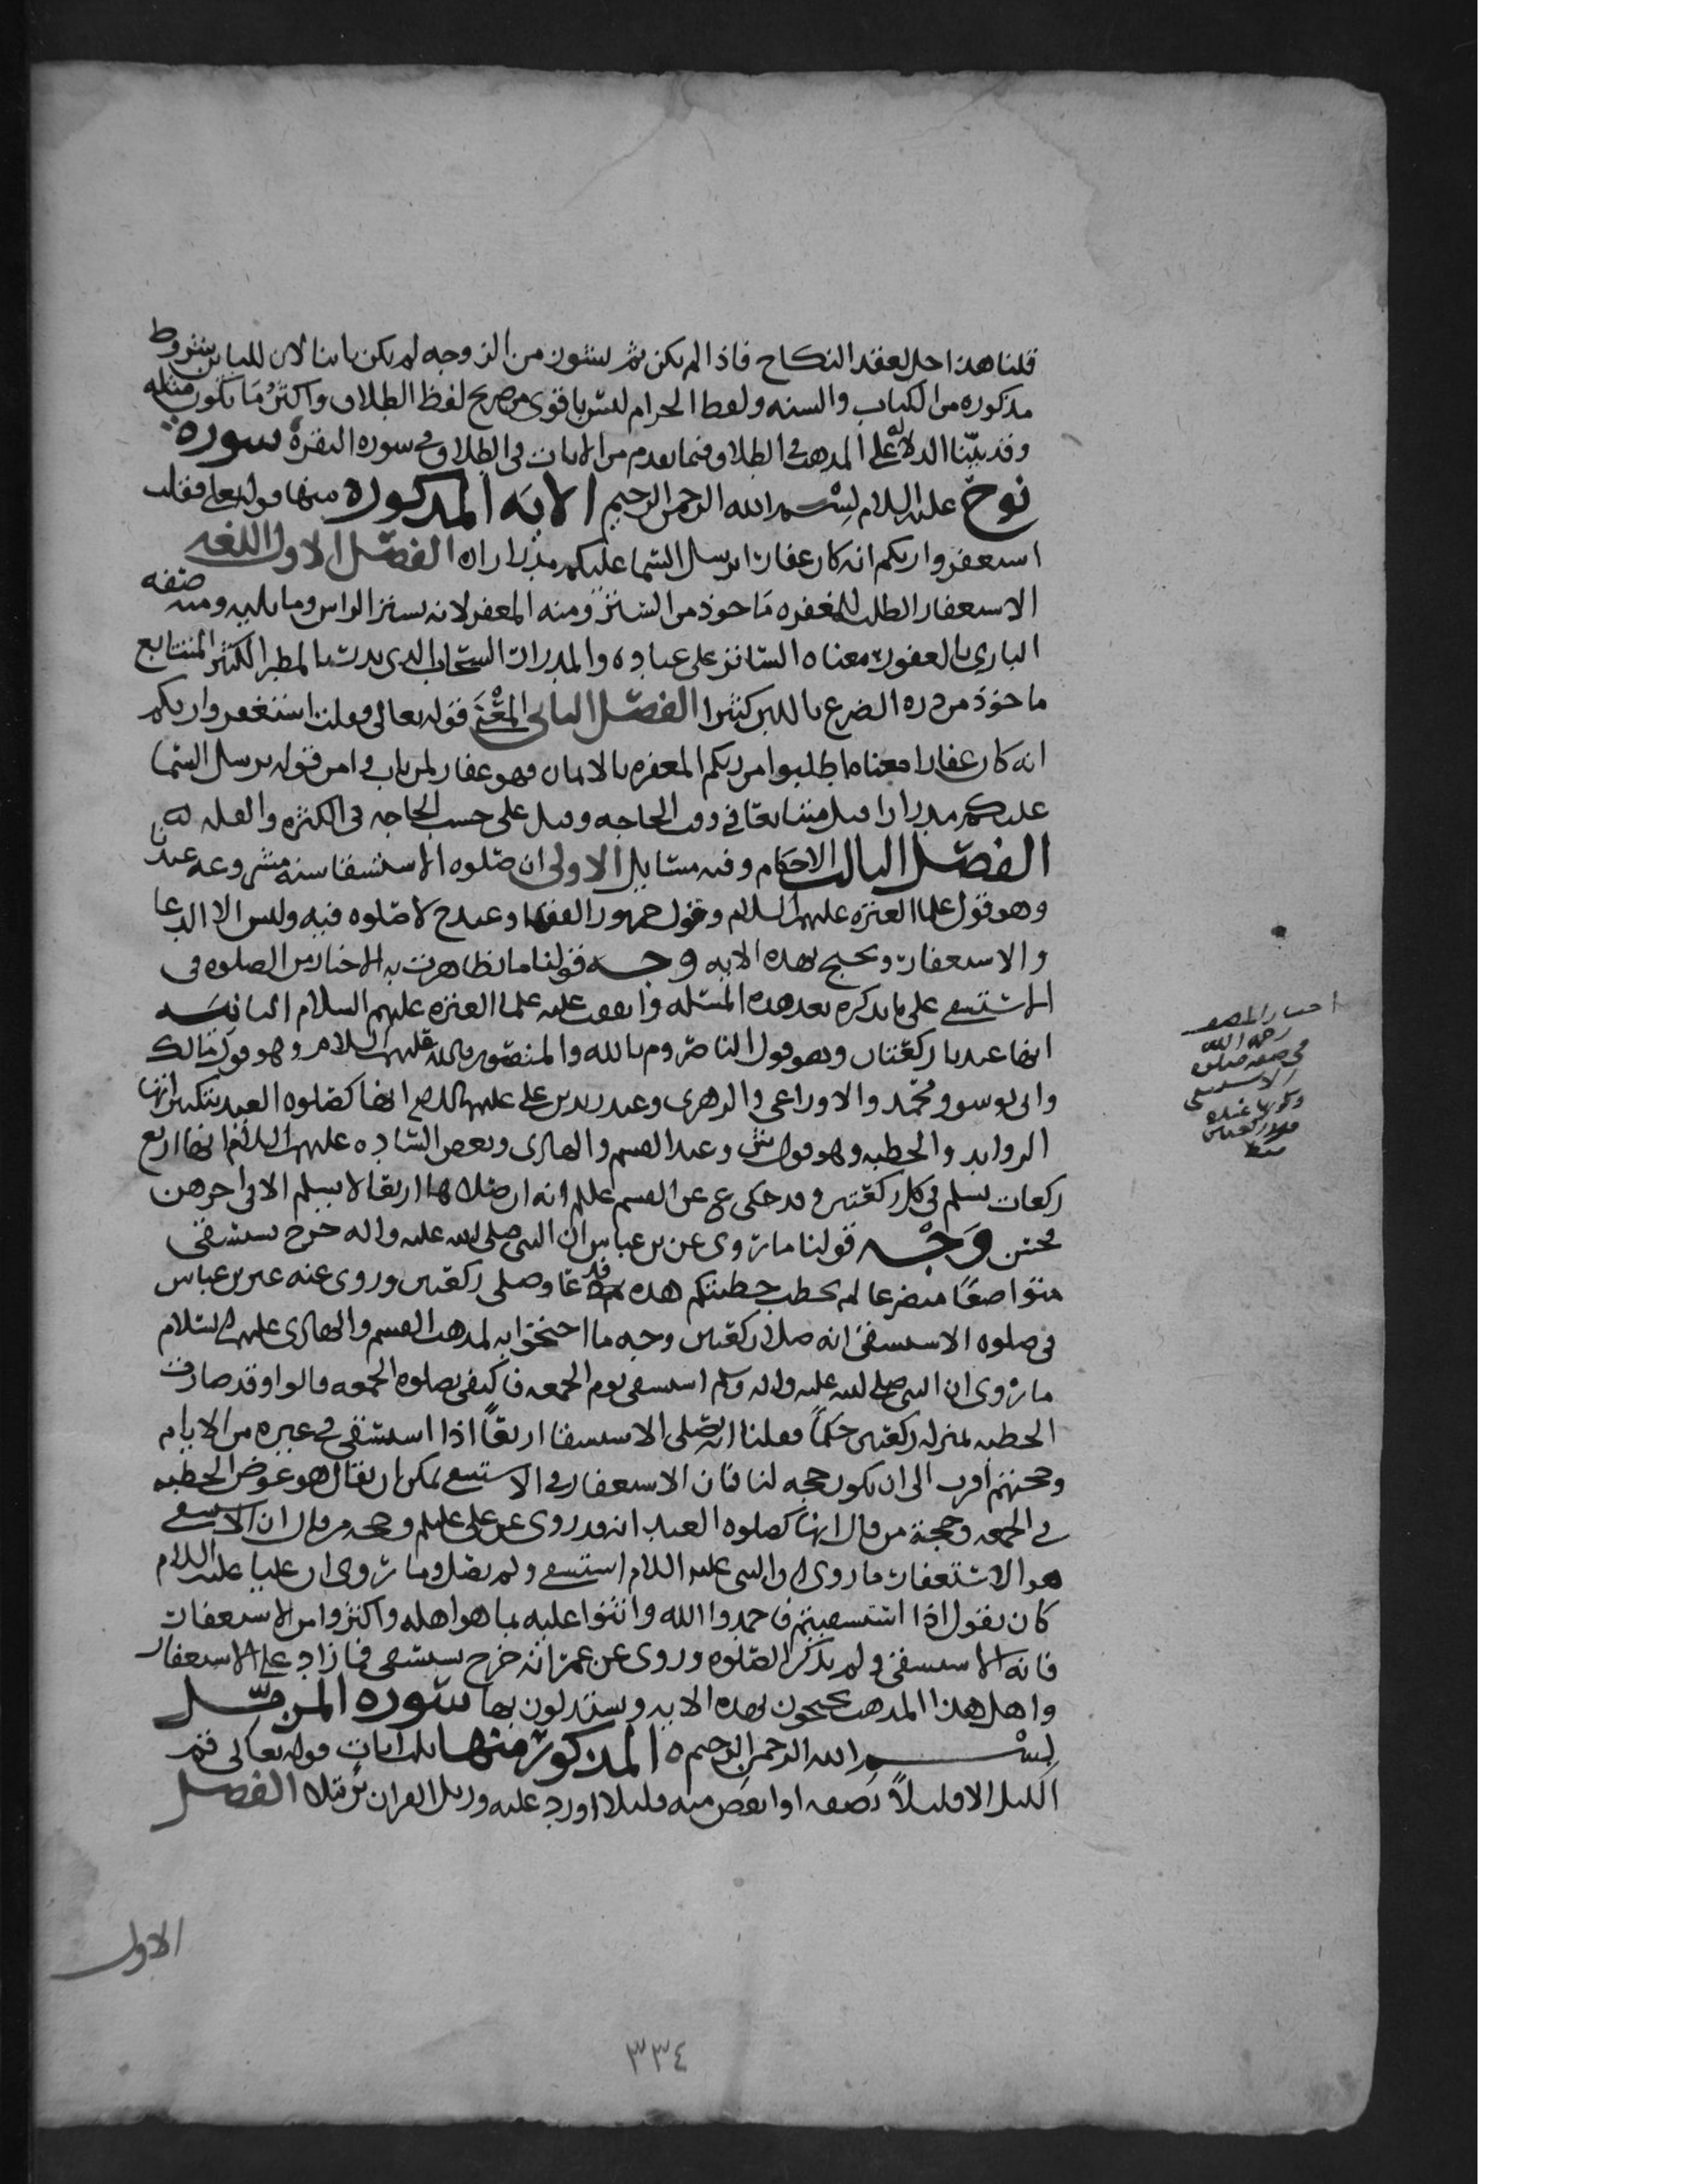 قلنا هذا حل لعقد النكاح فاذا لم يكن ثم نشوز من الزوجه لم يكن باينا لان للباين شروط
مذكوره من الكتاب والسنه ولفظ الحرام ليس باقوى من صريح لفظ الطلاق واكثر ما يكون مثله
وقد بيّنا الدلاله على المذهب في الطلاق فيما تقدم من الايات في الطلاق في سوره البقره سوره
نوح عليه السلام بسم الله الرحمن الرحيم الايه المذكوره منها قوله تعالى فقلت
استغفروا ربكم انه كان غفارا يرسل السما عليكم مدرارا ه الفصل الاول اللغه
الاستغفار الطلب للمغفره ماخوذ من الستر ومنه المغفر لانه يستر الراس وما يليه ومنه صفه
الباري بالغفور معناه الساتر على عباده والمدرار السحاب الذي يدر بالمطر الكثير المتتابع
ماخوذ من دره الضرع باللبن كثيرا الفصل الثاني المعنى قوله تعالى فقلت استغفروا ربكم
انه كان غفارا معناه اطلبوا من ربكم المغفره بالايمان فهو غفار لمن تاب وامن قوله يرسل السما
عليكم مدرارا قيل متتابعا في وقت الحاجه وقيل على حسب الحاجه في الكثره والقله
الفصل الثالث الاحكام وفيه مسايل الاولى ان صلوه الاستسقا سنه مشروعه عندنا
وهو قول علما العتره عليهم السلام وقول جمهور الفقها وعند ح لا صلوه فيه وليس الا الدعا
والاستغفار ويحتج بهذه الايه وجه قولنا ما تظاهرت به الاخبار من الصلوه في
الاستسقى على ما نذكره بعد هذه المسئله واتفقت عليه علما العتره عليهم السلام الثانيه
انها عندنا ركعتان وهو قول الناصر وم بالله والمنصور بالله عليهم السلام وهو قول مالك
وابي يوسف ومحمد والاوزاعي والزهري وعند زيد بن علي عليهما السلام انها كصلوه العيد بتكبيراتها
الزوايد والخطبه وهو قول ش وعند القسم والهادي وبعض الساده عليهم السلام انها اربع
ركعات يسلم في كل ركعتين وقد حكى ع عن القسم عليلم انه ان صلاها اربعا لا يسلم الا في اخرهن
فحسن وجه قولنا ما روي عن بن عباس ان النبي صلى الله عليه واله خرج يستسقي
متواضعا متضرعا لم يخطب خطبتكم هذه قد دعا وصلى ركعتين وروى عنه عن بن عباس
في صلوه الاستسقى انه صلا ركعتين وجه ما احتجوا به لمذهب القسم والهادي عليهم السلام
ما روي ان النبي صلى الله عليه واله وسلم استسقى يوم الجمعه فاكتفى بصلوه الجمعه قالوا وقد صارت
الخطبه بمنزله ركعتين حكما فقلنا انه يصلي الاستسقا اربعا اذا استسقى في غيره من الايام
وحجتهم اقرب الى ان يكون حجه لنا فان الاستغفار في الاستسقى يمكن ان يقال هو عوض الخطبه
في الجمعه وحجة من قال انها كصلوه العيد انه قد روي عن علي عليلم وحجه من قال ان الاستسقى
هو الاستغفار ما روي ان النبي عليه السلام استسقى ولم يصل وما روي ان عليا عليه السلام
كان يقول اذا استسقيتم فاحمدوا الله واثنوا عليه بما هو اهله واكثروا من الاستغفار
فانه الاستسقى ولم يذكر الصلوه وروي عن عمر انه خرج يستسقى فما زاد على الاستغفار
واهل هذا المذهب يحتجون بهذه الايه ويستدلون بها سوره المزمل
بسم الله الرحمن الرحيم ه المذكور منها ثلث ايات قوله تعالى قم
الليل الا قليلاً نصفه او انقص منه قليلا او زد عليه ورتل القران ترتيلا الفصل
اختيار المصنف
رحمه الله
في صفه صلوه
الاستسقى
وكونها عنده
ركعتين
فقط
الاول
٣٣٤